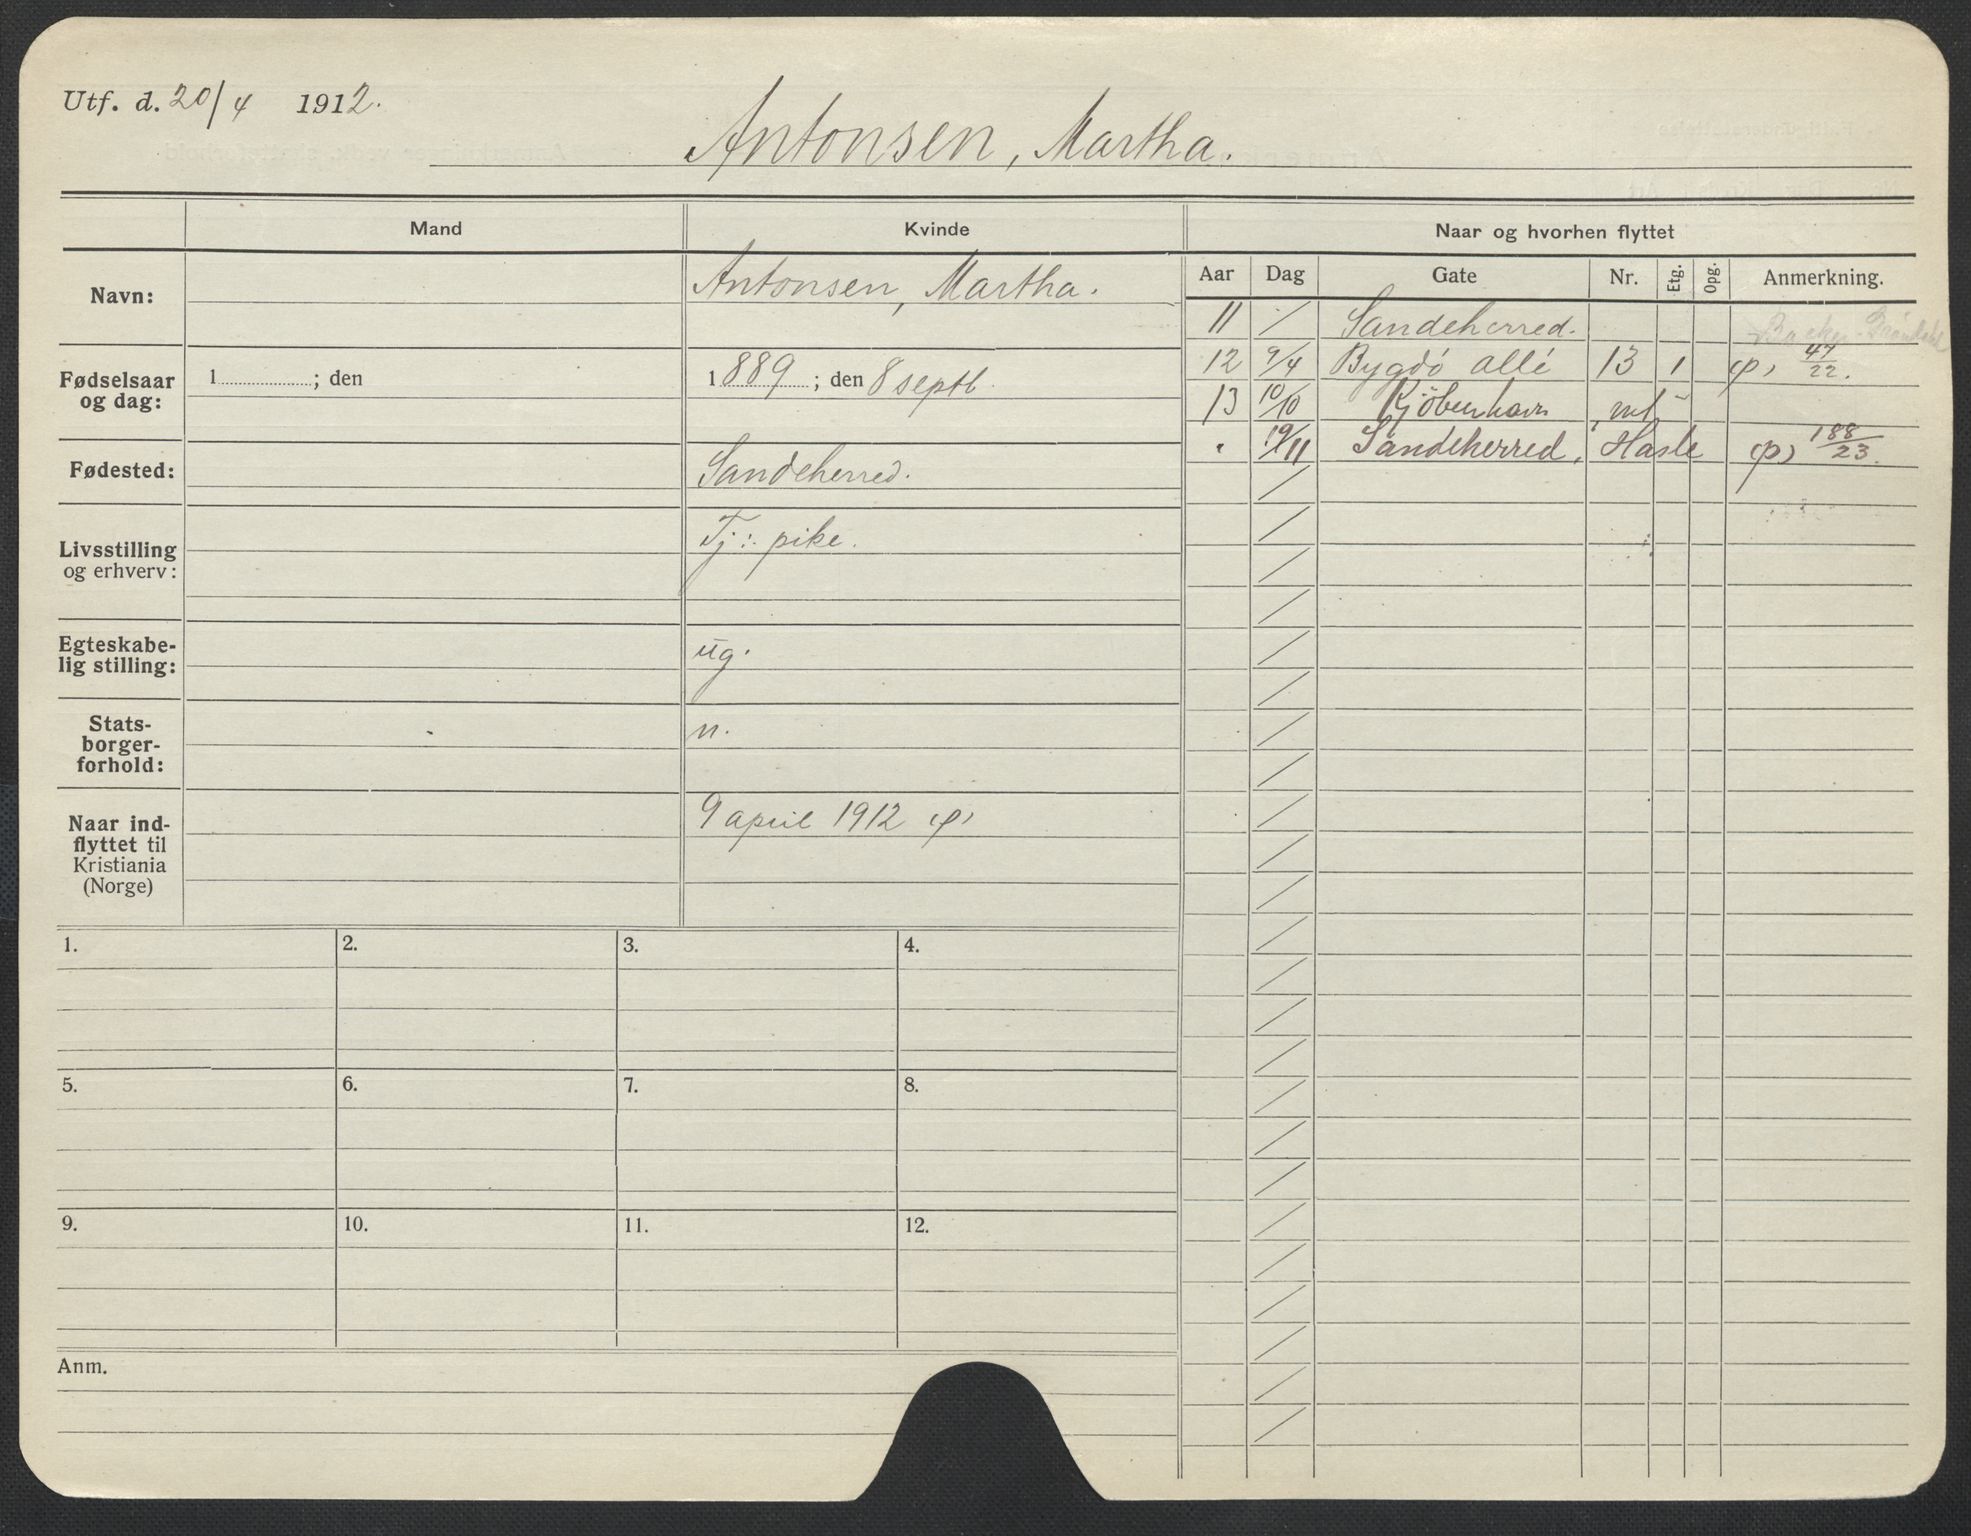 Utf. d. 20/4 1912.
Antonsen, Martha.
Mand Kvinde Naar og hvorhen flyttet
Aar Dag Gate Nr. Etg. Opg. Anmerkning.
Navn: Antonsen, Martha.
11 / Sandeherred.
12 9/4 Bygdö allé 13 1 (p) 47/22.
13 10/10 Kjöbenhavn
" 19/11 Sandeherred, Hasle (p) 188/23.
Fødselsaar
og dag:
1 ; den
1889 ; den 8 septb.
Fødested: Sandeherred.
Livsstilling
og erhverv:
Tj: pike.
Egteskabe-
lig stilling:
ug.
Stats-
borger-
forhold:
n.
Naar ind-
flyttet til
Kristiania
(Norge)
9 april 1912 (p)
1. 2. 3. 4.
5. 6. 7. 8.
9. 10. 11. 12.
Anm.